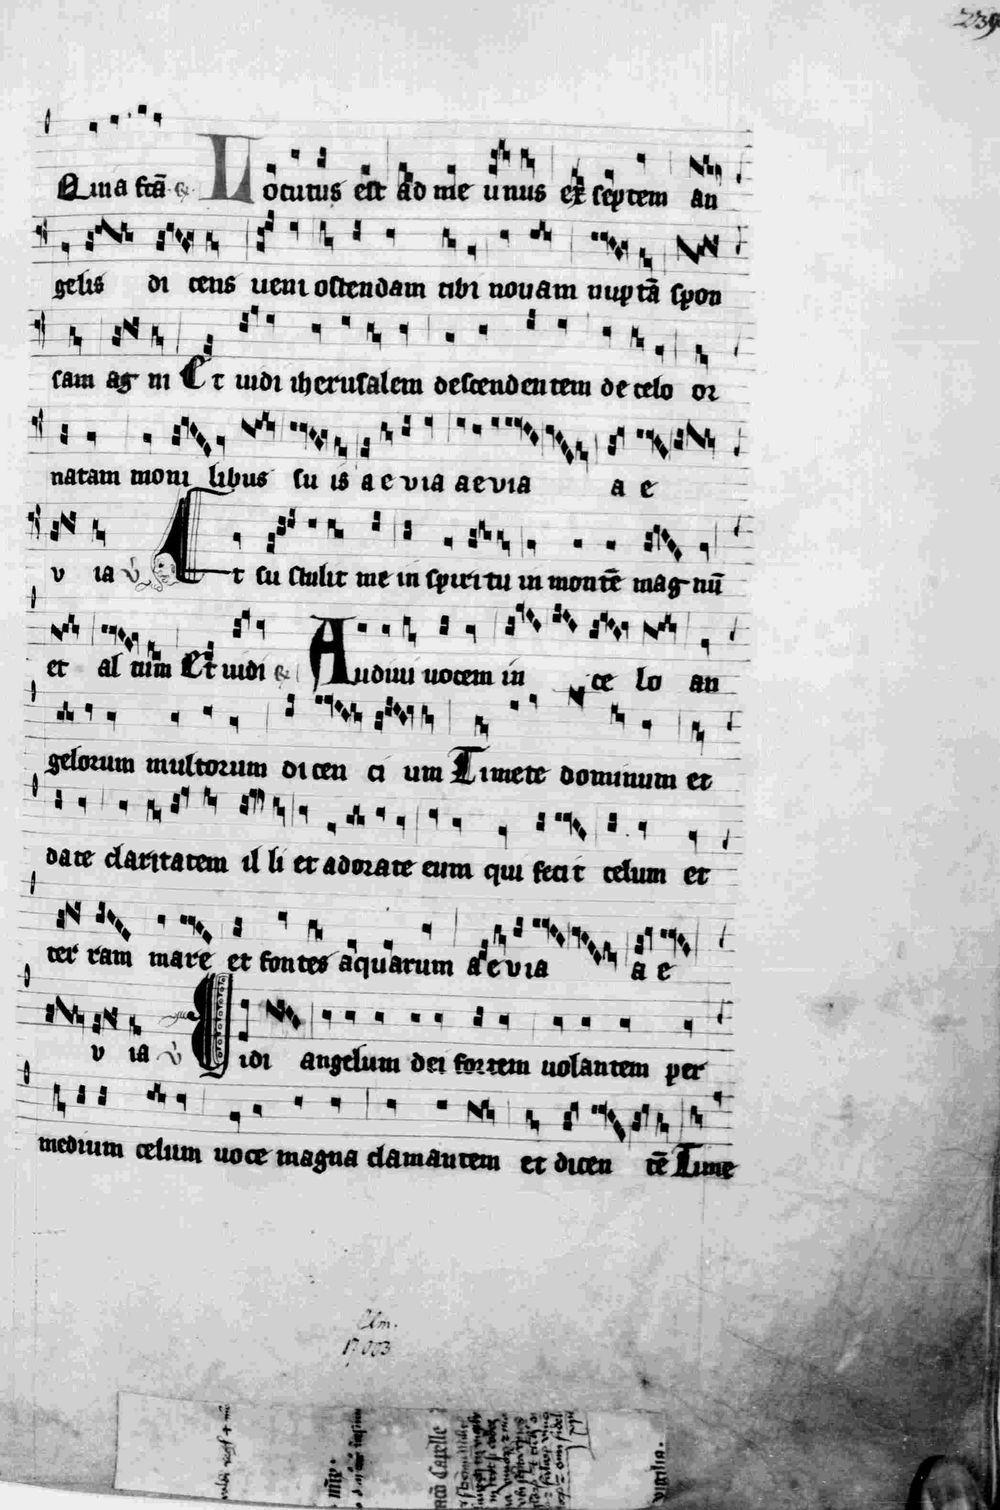 239
Quia fcā ⁊ Locutus est ad me unus ex septem an
gelis di cens ueni ostendam tibi nouam nuptā spon
sam ag ni Et uidi iherusalem descendentem de celo or
natam moni libus su is a e v ia a e v ia a e
v ia v Et su stulit me in spiritu in montē mag nū
et al tum Et uidi ⁊ Audiui uocem in ce lo an
gelorum multorum dicen ci um Timete dominum et
date claritatem il li et adorate eum qui fecit celum et
ter ram mare et fontes aquarum a e v ia a e
v ia v Vidi angelum dei fortem uolantem per
medium celum uoce magna clamantem et dicen tē Time
Clm.
17003